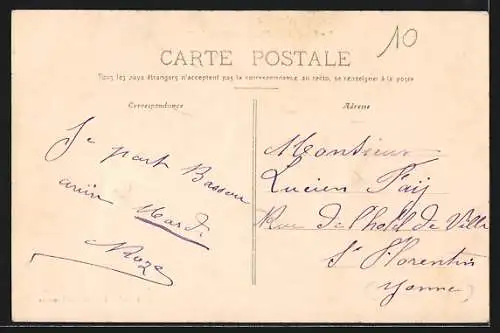 10
CARTE POSTALE
Tous les pays étrangers n'acceptent pas la correspondance au recto, se renseigner à la poste
Correspondance
Adresse
Je part Bassou
Mardi
Monsieur
Lucien Fay
Rue de l'hotel de Ville
St Florentin
(Yonne)